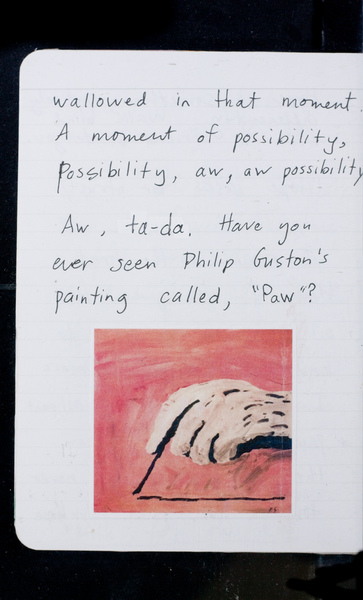 wallowed in that moment.
A moment of possibility,
Possibility, aw, aw possibility
Aw, ta-da. Have you
ever seen Philip Guston's
painting called, "Paw"?